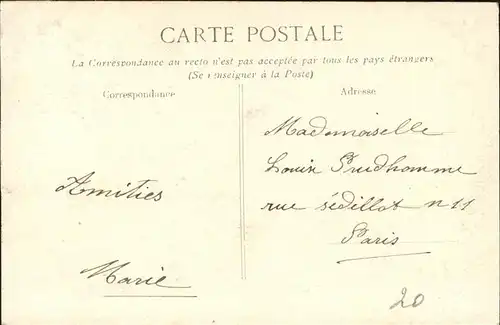 CARTE POSTALE
La Correspondance au recto n'est pas acceptée par tous les pays étrangers
(Se renseigner à la Poste)
Correspondance
Adresse
Mademoiselle
Louise Prudhomme
rue sédillot n 11
Paris
Amitiés
Marie
20